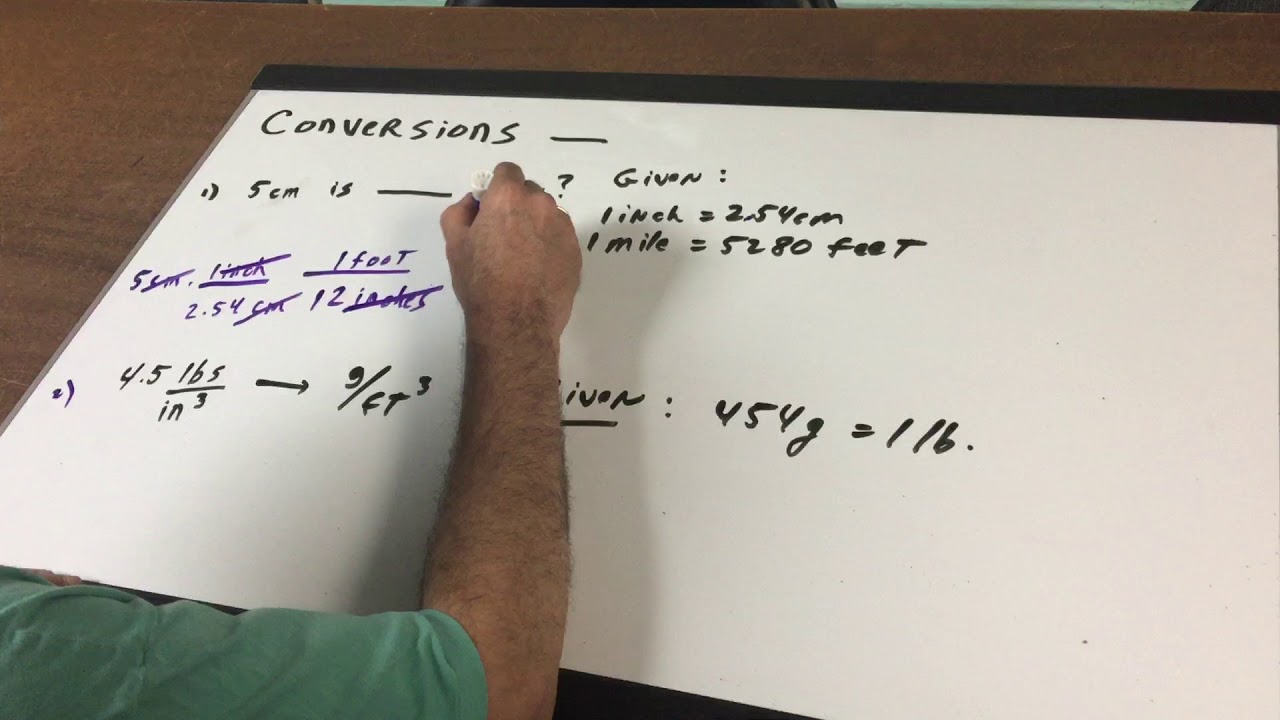 Conversions —
1) 5cm is ____ ?
Given:
1 inch = 2.54cm
1 mile = 5280 feet
5cm. 1inch 1foot
2.54 cm 12 inches
2) 4.5 lbs → g/ft³
in³
Given: 454g = 1 lb.